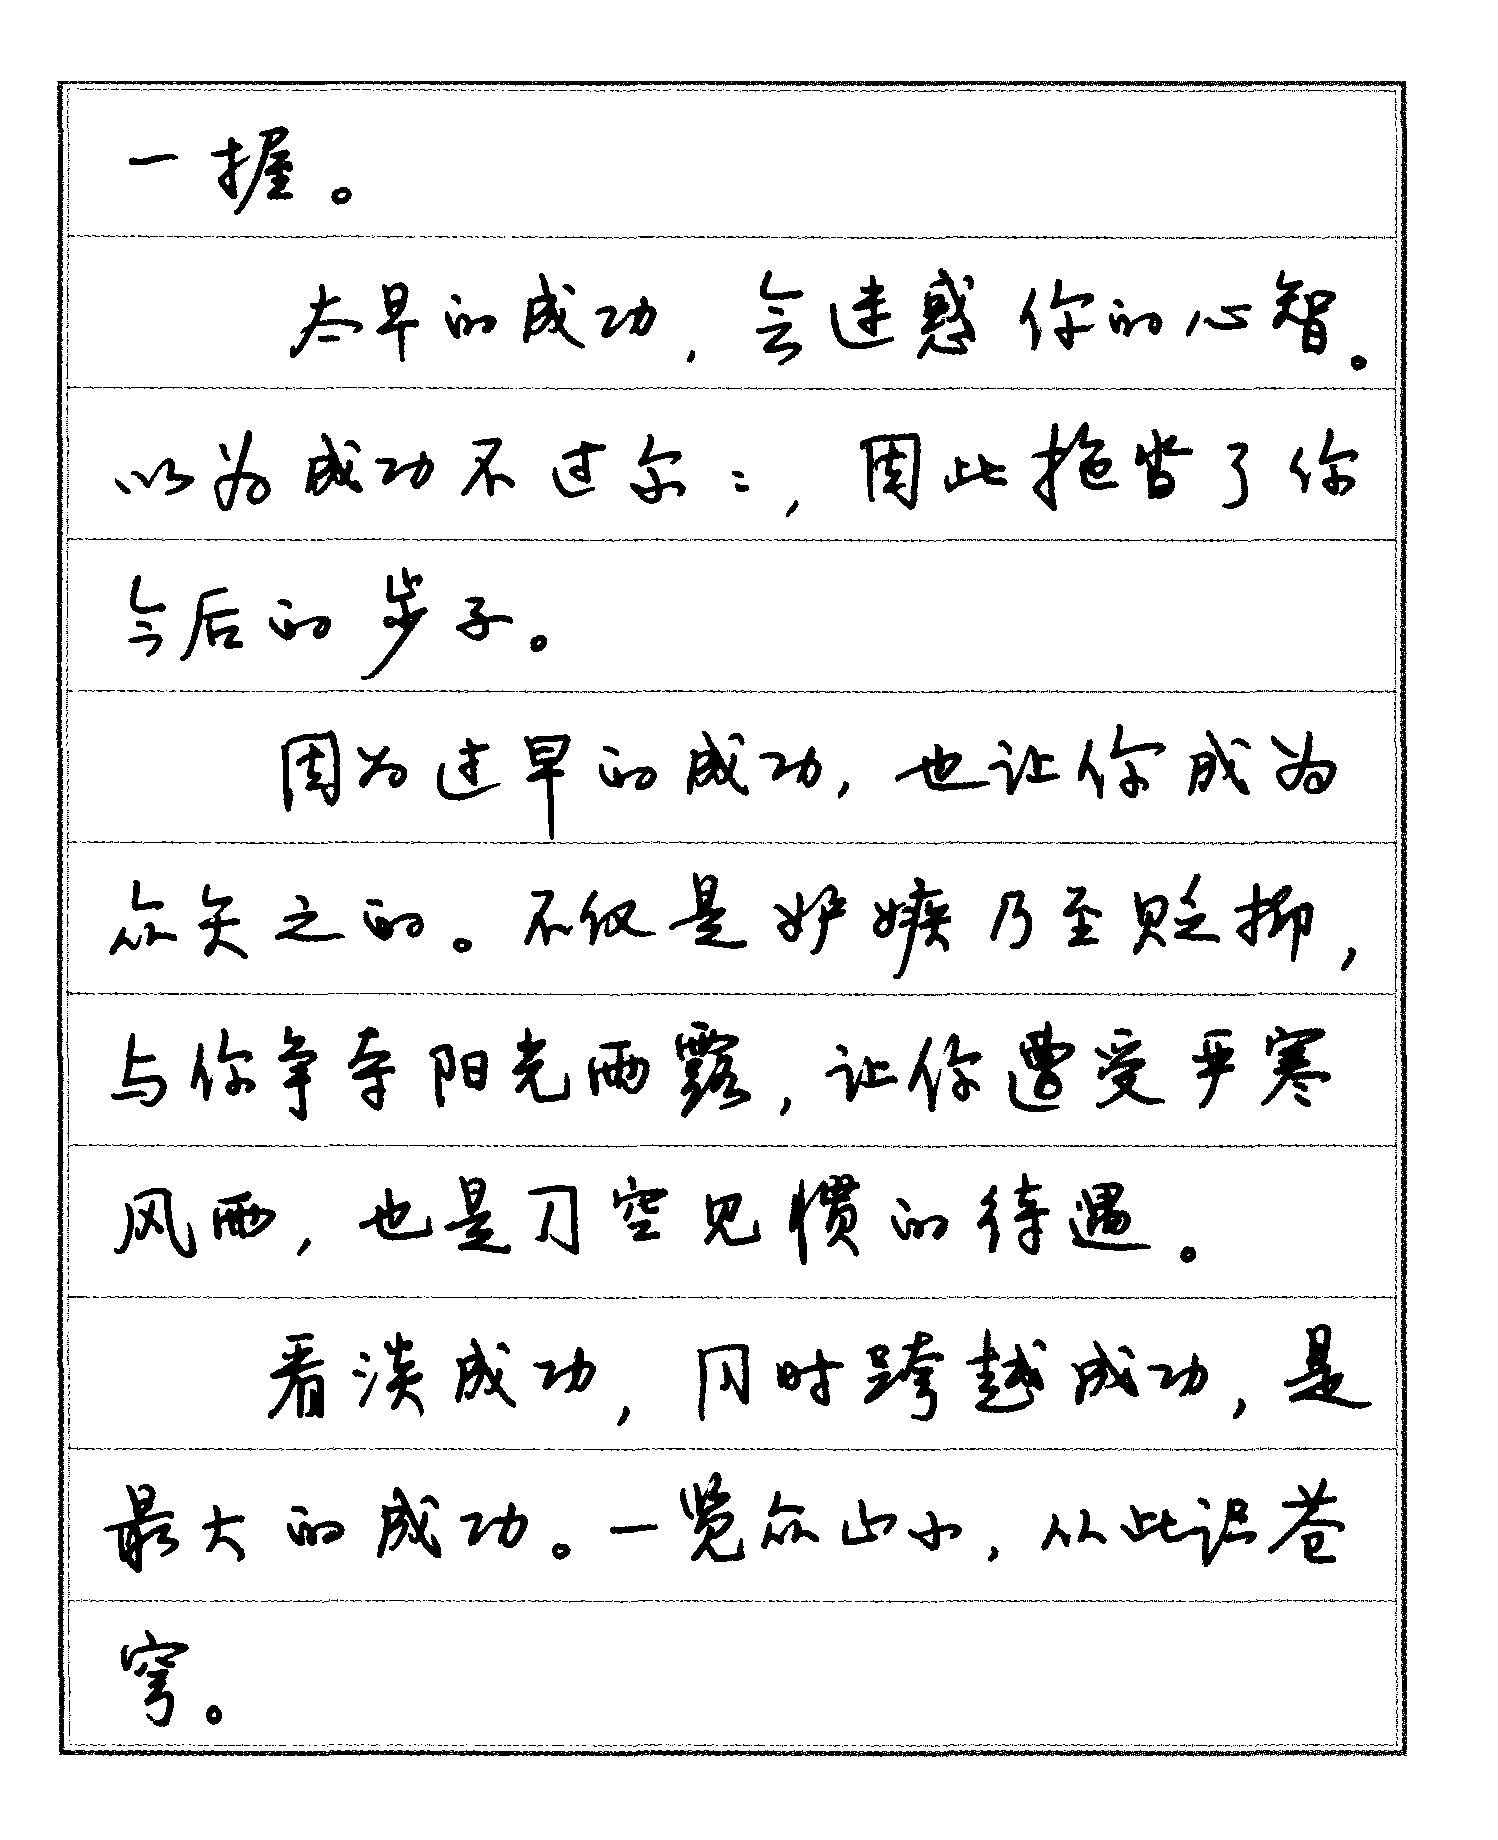 一握。
太早的成功，会迷惑你的心智。
以为成功不过尔尔，因此拖沓了你
今后的步子。
因为过早的成功，也让你成为
众矢之的。不仅是妒嫉乃至贬抑，
与你争夺阳光雨露，让你遭受严寒
风雨，也是司空见惯的待遇。
看淡成功，同时跨越成功，是
最大的成功。一览众山小，从此识苍
穹。